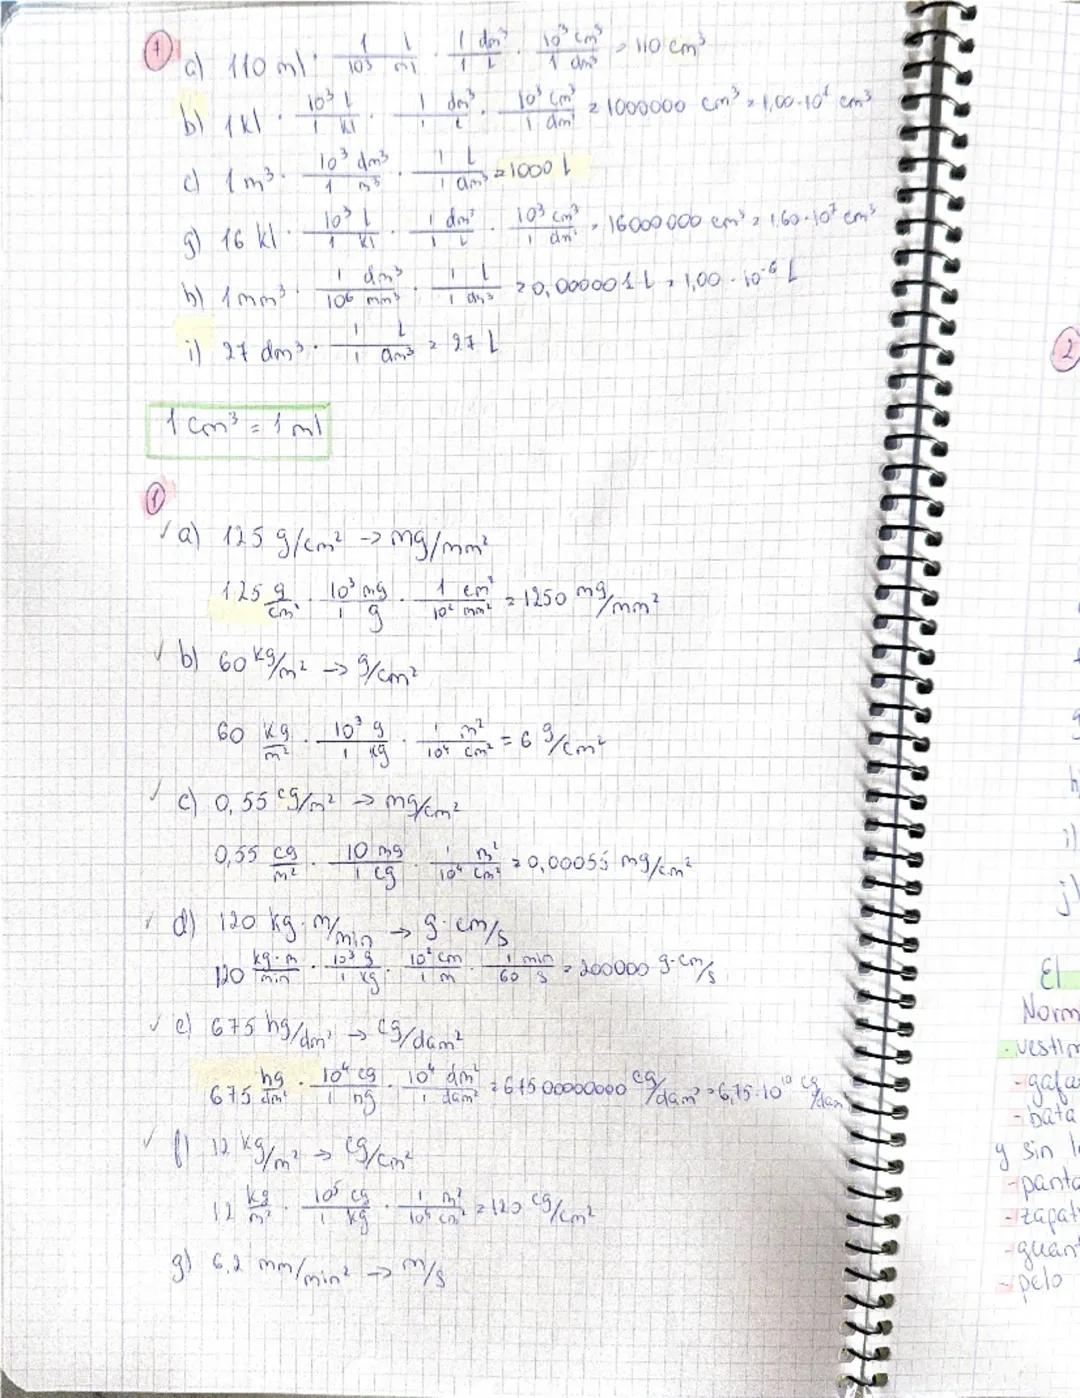 1
a) 110 ml · 1 l / 10³ ml · 1 dm³ / 1 l · 10³ cm³ / 1 dm³ = 110 cm³
b) 1 kl · 10³ l / 1 kl · 1 dm³ / 1 l · 10³ cm³ / 1 dm³ = 1000000 cm³ = 1,00·10⁶ cm³
c) 1 m³ · 10³ dm³ / 1 m³ · 1 l / 1 dm³ = 1000 l
g) 16 kl · 10³ l / 1 kl · 1 dm³ / 1 l · 10³ cm³ / 1 dm³ = 16000000 cm³ = 1,60·10⁷ cm³
h) 1 mm³ · 1 dm³ / 10⁶ mm³ · 1 l / 1 dm³ = 0,000001 l = 1,00·10⁻⁶ l
i) 27 dm³ · 1 l / 1 dm³ = 27 l
1 cm³ = 1 ml
1
✓ a) 125 g/cm² -> mg/mm²
125 g/cm² · 10³ mg / 1 g · 1 cm² / 10² mm² = 1250 mg/mm²
✓ b) 60 kg/m² -> g/cm²
60 kg/m² · 10³ g / 1 kg · 1 m² / 10⁴ cm² = 6 g/cm²
✓ c) 0,55 cg/m² -> mg/cm²
0,55 cg/m² · 10 mg / 1 cg · 1 m² / 10⁴ cm² = 0,00055 mg/cm²
✓ d) 120 kg·m/min -> g·cm/s
120 kg·m/min · 10³ g / 1 kg · 10² cm / 1 m · 1 min / 60 s = 200000 g·cm/s
✓ e) 675 hg/dm² -> cg/dam²
675 hg/dm² · 10⁴ cg / 1 hg · 10⁴ dm² / 1 dam² = 67500000000 cg/dam² = 6,75·10¹⁰ cg/dam
✓ f) 12 kg/m² -> cg/cm²
12 kg/m² · 10⁵ cg / 1 kg · 1 m² / 10⁴ cm² = 120 cg/cm²
g) 6,2 mm/min² -> m/s
2
g
h
i)
j)
El
Norm
·vestim
-gafa
-bata
y sin l
-panta
-zapat
-guan
-pelo